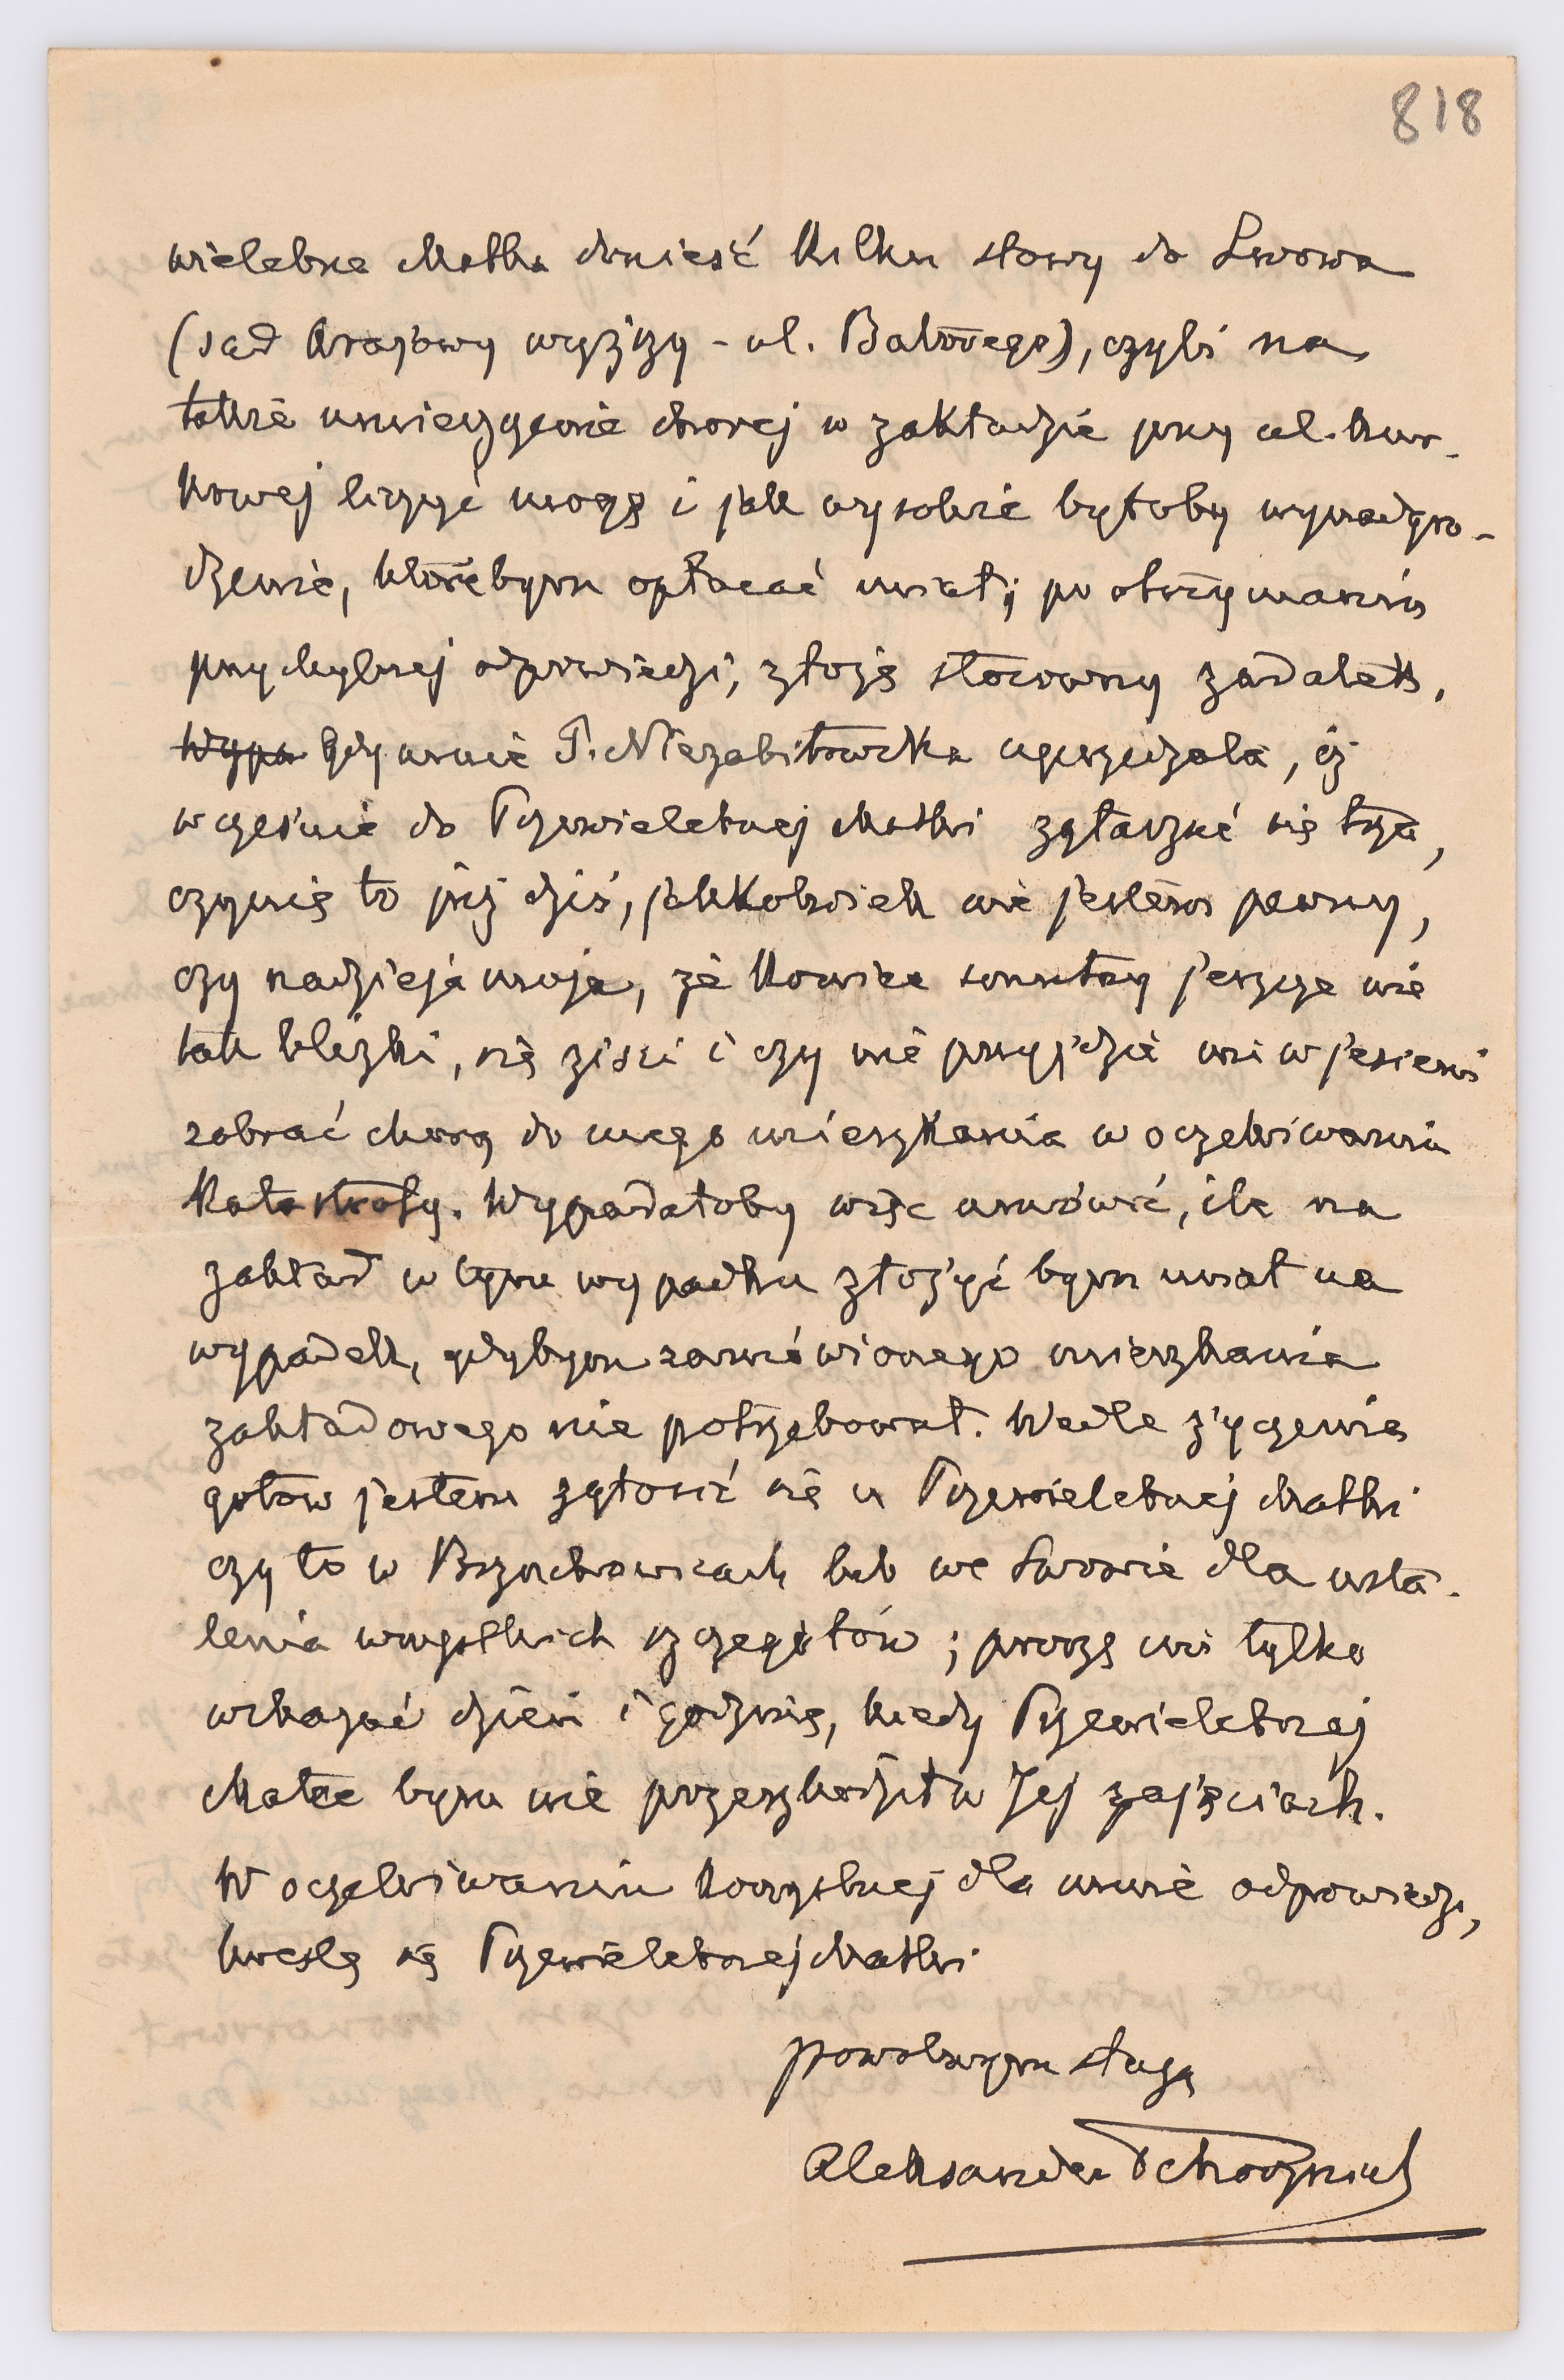 818
wielebna Matka donieść kilku słowy do Lwowa
(sąd krajowy wyższy - ul. Batorego), czyli na
takie umieszczenie chorej w zakładzie przy ul. Kur-
kowej liczyć mogę i jak wysokie byłoby wynadgro-
dzenie, którebym opłacać miał; po otrzymaniu
przychylnej odpowiedzi, złożę stosowny zadatek.
Wypa Gdy mnie P. Niezabitowska uprzedzała, iż
wcześnie do Przewielebnej Matki zgłaszać się trza,
czynię to już dziś, jakkolwiek nie jestem pewny,
czy nadzieja moja, że koniec smutny jeszcze nie
tak blizki, się ziści i czy nie przyjdzie mi w jesieni
zabrać chorą do mego mieszkania w oczekiwaniu
katastrofy. Wypadałoby więc umówić, ile na
zakład w tym wypadku złożyć bym miał na
wypadek, gdybym zamówionego mieszkania
zakładowego nie potrzebował. Wedle życzenia
gotów jestem zgłosić się u Przewielebnej Matki
czy to w Brzuchowicach lub we Lwowie dla usta-
lenia wszystkich szczegółów; proszę mi tylko
wskazać dzień i godzinę, kiedy Przewielebnej
Matce bym nie przeszkodził w Jej zajęciach.
W oczekiwaniu korzystnej dla mnie odpowiedzi,
kreślę się Przewielebnej Matki
powolnym sługą
Aleksander Tchorznicki